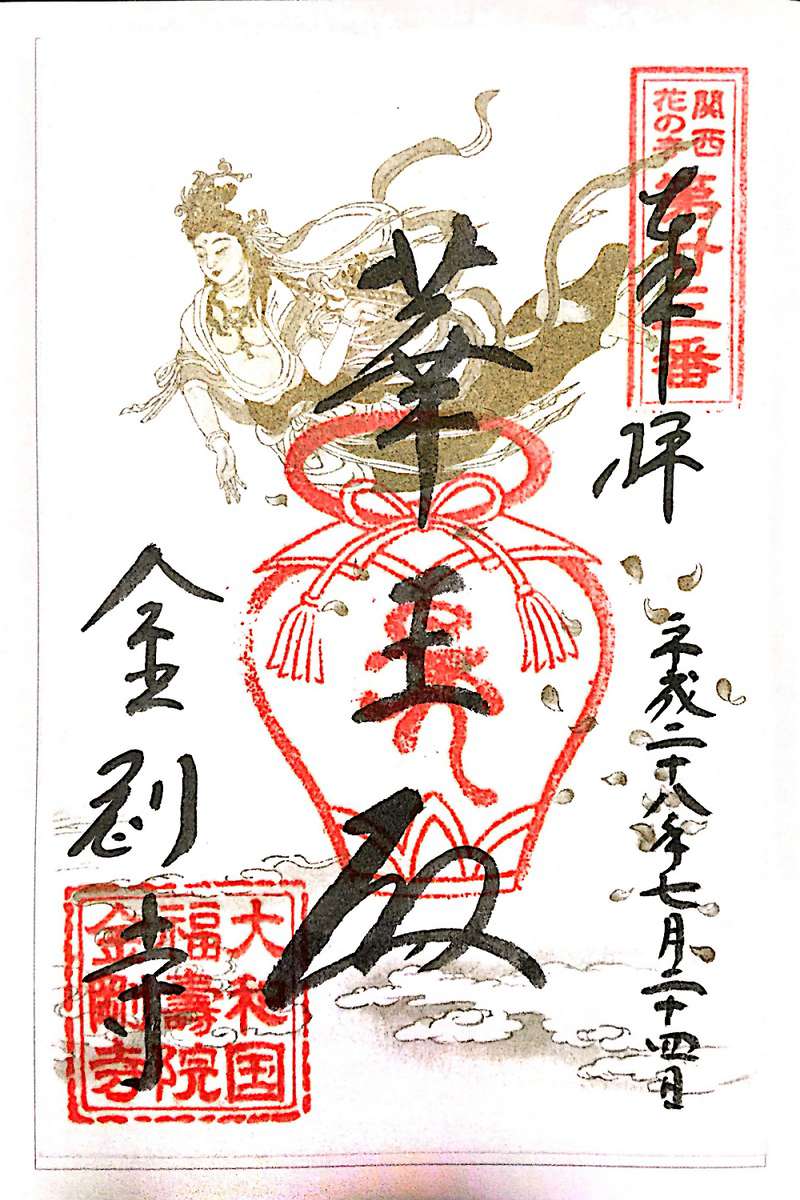 関西
花の寺
第廿三番
奉拝
平成二十八年七月二十四日
華王殿
金剛寺
大和国
福壽院
金剛寺